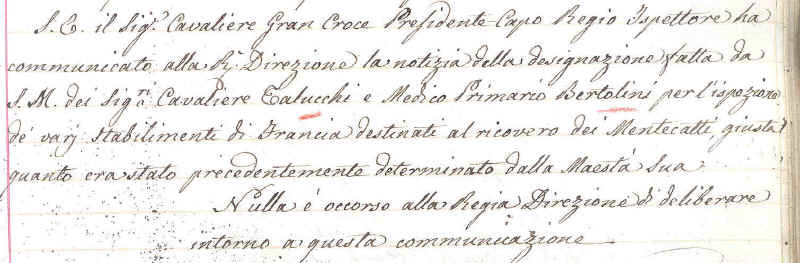 S. E. il Sig.r Cavaliere Gran Croce Presidente Capo Regio Ispettore ha
communicato alla R.ª Direzione la notizia della designazione fatta da
S. M. dei Sig.ri Cavaliere Talucchi e Medico Primario Bertolini per l'ispezione
de' varj stabilimenti di Francia destinati al ricovero dei Mentecatti, giusta
quanto era stato precedentemente determinato dalla Maestà Sua.
Nulla è occorso alla Regia Direzione di deliberare
intorno a questa communicazione.